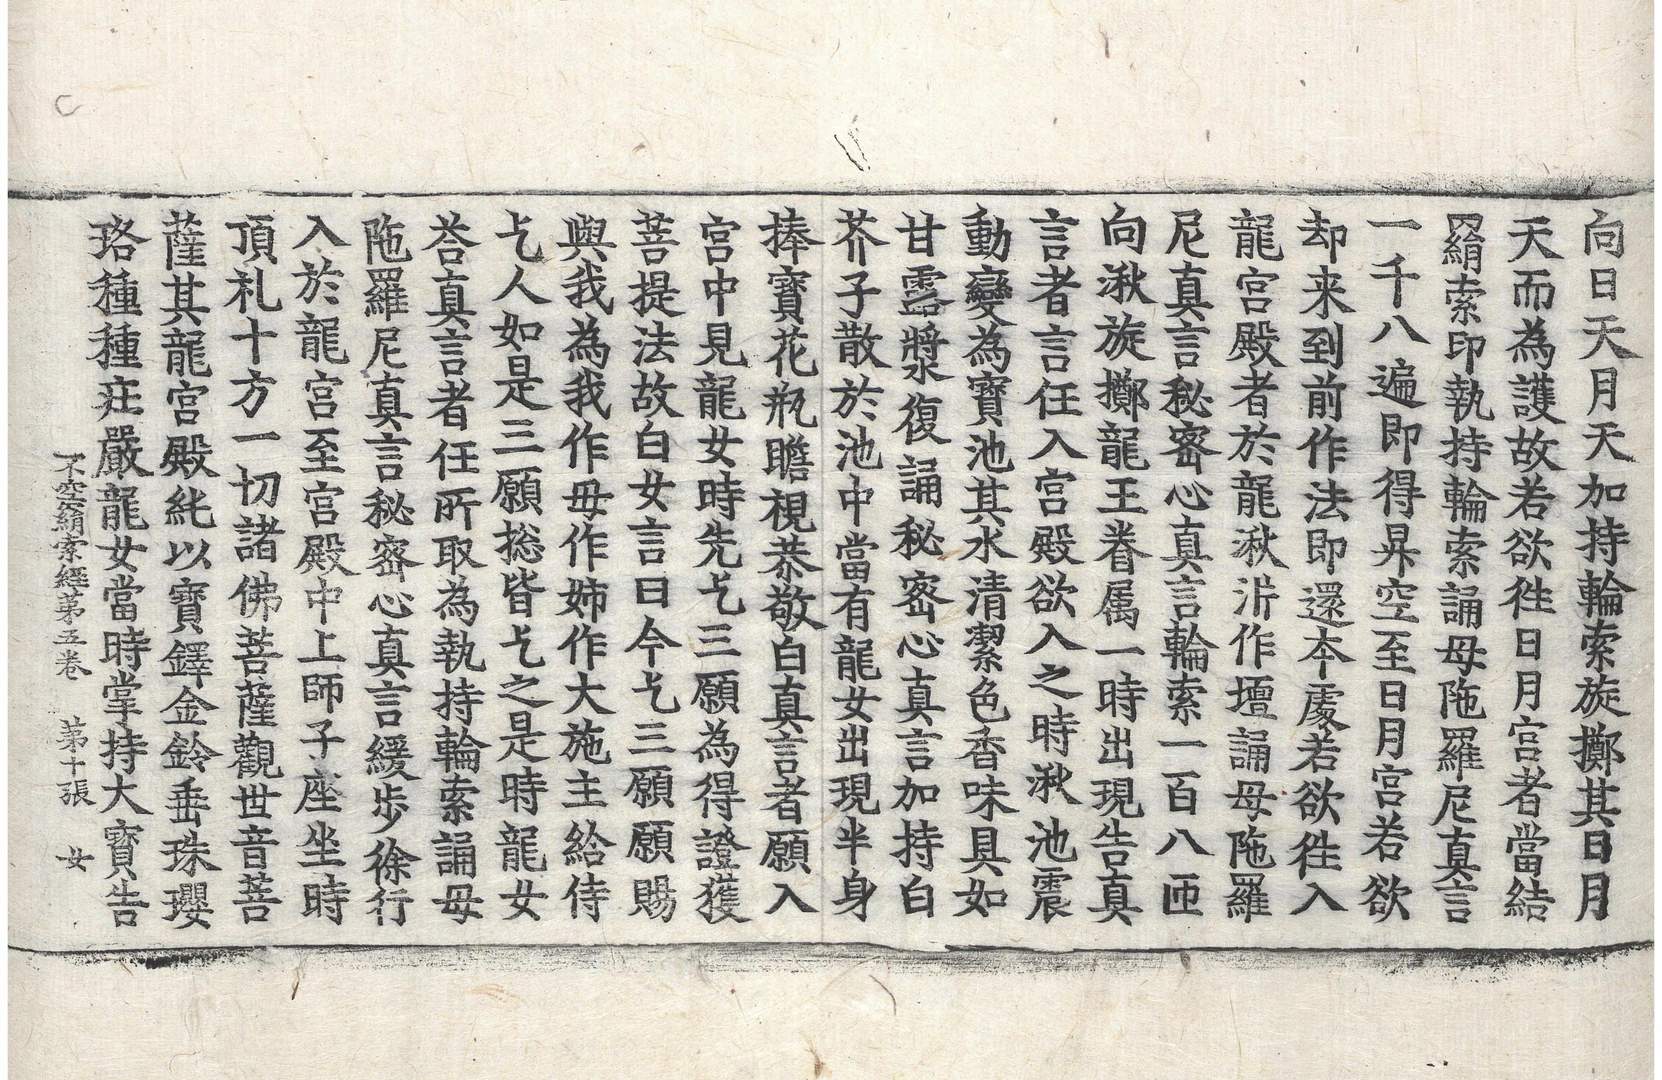 向日天月天加持輪索旋擲其日月
天而為護故若欲徃日月宮者當結
羂索印執持輪索誦母陁羅尼真言
一千八遍即得昇空至日月宮若欲
却来到前作法即還本處若欲徃入
龍宮殿者於龍湫泝作壇誦母陁羅
尼真言秘密心真言輪索一百八匝
向湫旋擲龍王眷属一時出現告真
言者言任入宮殿欲入之時湫池震
動變為寶池其水清潔色香味具如
甘露將水復誦秘密心真言加持白
芥子散於池中當有龍女出現半身
捧寶花瓶瞻視恭敬白真言者願入
宮中見龍女時先乞三願為得證獲
菩提法故白女言曰今乞三願願賜
與我為我作母作姉作大施主給侍
乞人如是三願捴皆乞之是時龍女
荅真言者任所取為執持輪索誦母
陁羅尼真言秘密心真言緩步徐行
入於龍宮至宮殿中上師子座坐時
頂礼十方一切諸佛菩薩觀世音菩
薩其龍宮殿純以寶鐸金鈴垂珠瓔
珞種種㽵嚴龍女當時掌持大寶告
不空羂索經苐五卷 苐十張 女